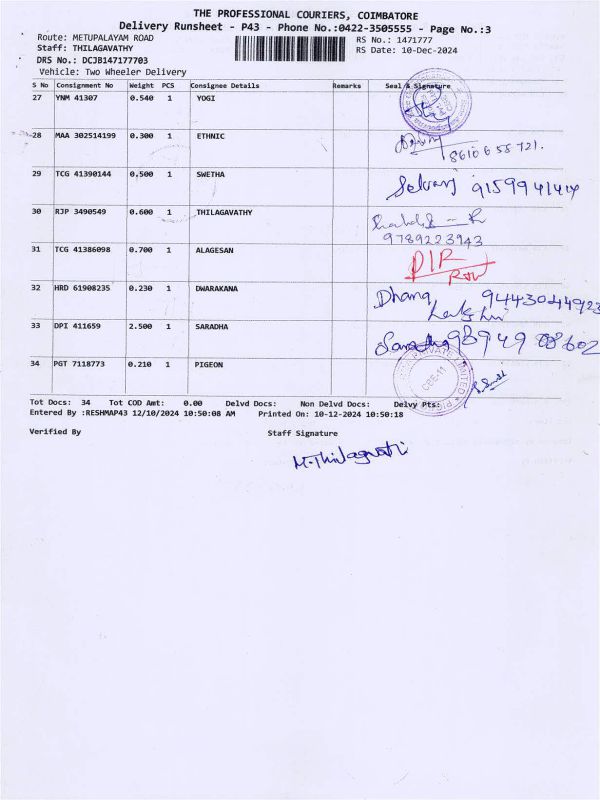 THE PROFESSIONAL COURIERS, COIMBATORE
Delivery Runsheet - P43 - Phone No.:0422-3505555 - Page No.:3
Route: METUPALAYAM ROAD RS No.: 1471777
Staff: THILAGAVATHY RS Date: 10-Dec-2024
DRS No.: DCJB147177703
Vehicle: Two Wheeler Delivery
S No Consignment No Weight PCS Consignee Details Remarks Seal & Signature
27 YNM 41307 0.540 1 YOGI
28 MAA 302514199 0.300 1 ETHNIC
8610655721.
29 TCG 41390144 0.500 1 SWETHA Selvaraj 9159941414
30 RJP 3490549 0.600 1 THILAGAVATHY
9789223943
31 TCG 41386098 0.700 1 ALAGESAN DIR
32 HRD 61908235 0.230 1 DWARAKANA Dhana 9443044923
Lakshmi
33 DPI 411659 2.500 1 SARADHA Saradha 9894908602
34 PGT 7118773 0.210 1 PIGEON
PRIVATE LIMITED
CBE-11
Tot Docs: 34 Tot COD Amt: 0.00 Delvd Docs: Non Delvd Docs: Delvy Pts:
Entered By :RESHMAP43 12/10/2024 10:50:08 AM Printed On: 10-12-2024 10:50:18
Verified By Staff Signature
M.Thilagavathi